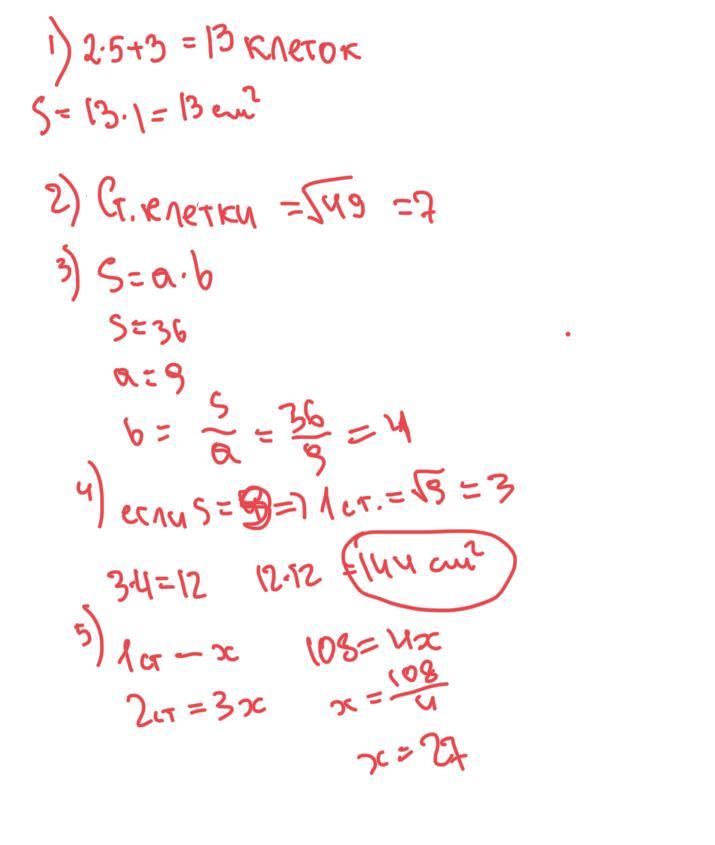 1) 2·5+3 = 13 клеток
S = 13·1 = 13 cm²
2) Ст. клетки = √49 = 7
3) S = a·b
S = 36
a = 9
b = S/a = 36/9 = 4
4) если S = 9 => 1 ст. = √9 = 3
3·4 = 12 12·12 = 144 cm²
5) 1 ст — x 108 = 4x
2 ст = 3x x = 108/4
x = 27